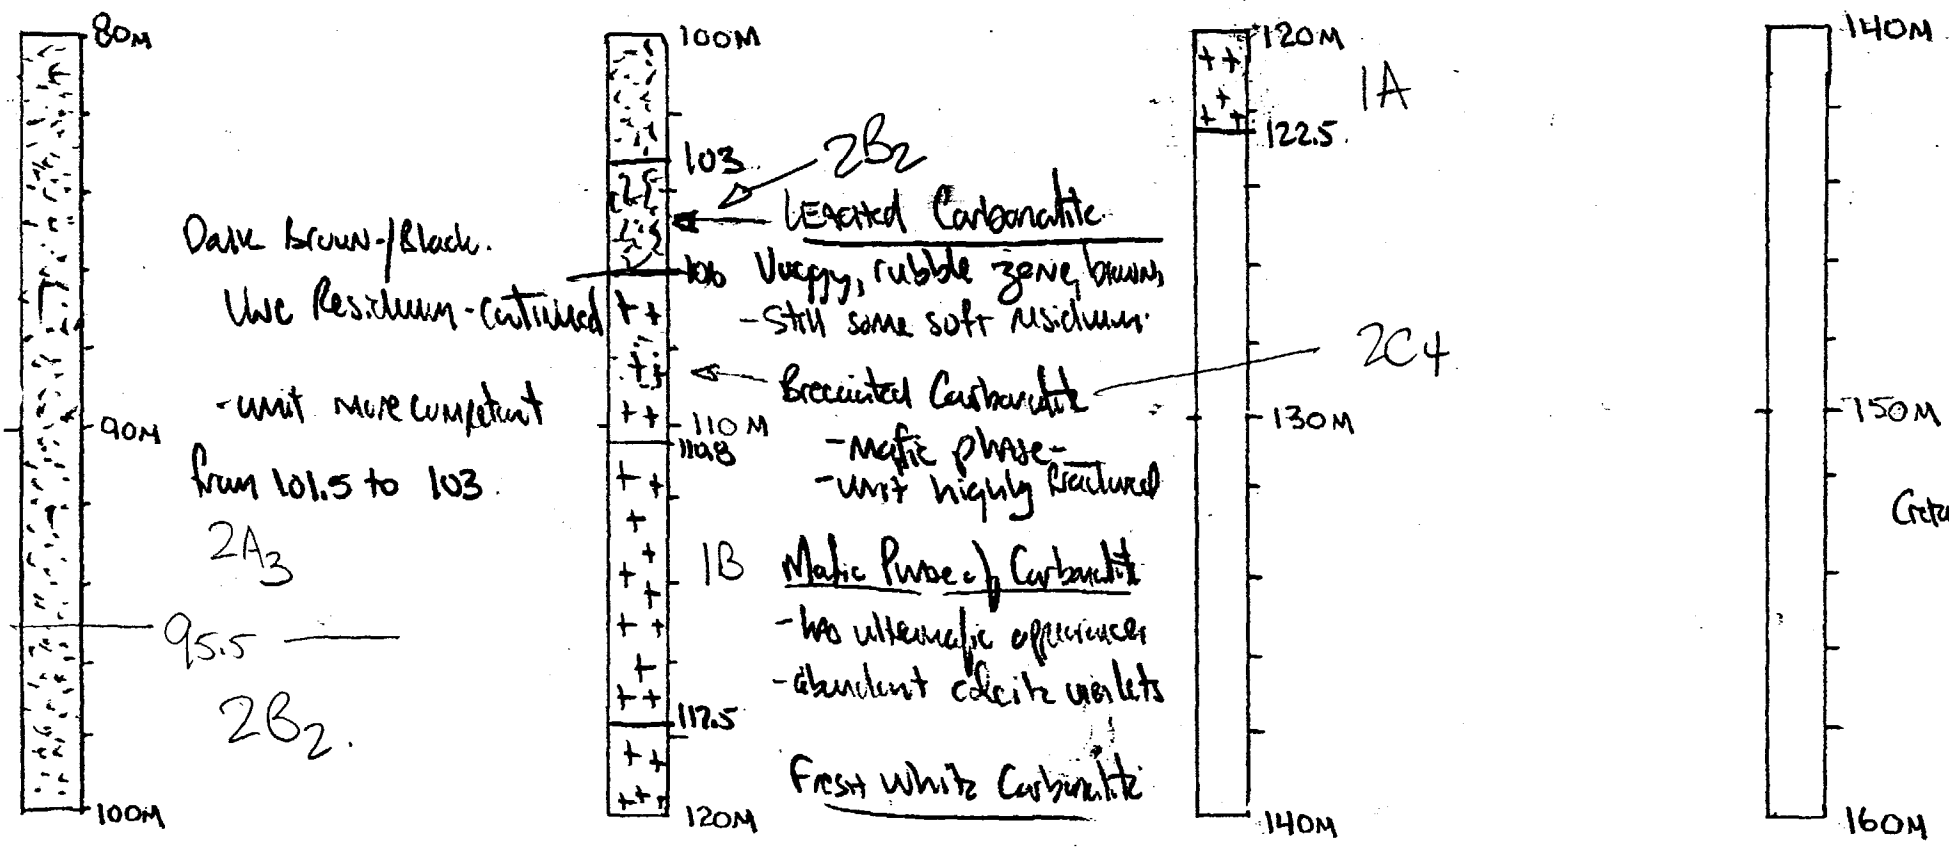 80M
Dark Brown/Black.
Residuum - continued
- unit more competent
90M
from 101.5 to 103.
2A3
95.5
2B2.
100M
100M
103
2B2
LEACHED Carbonatite.
106
Vuggy, rubble zone, brown,
- Still some soft residuum.
Brecciated Carbonatite
2C4
110M
- Mafic phase -
- unit highly fractured
1B
Mafic Phase of Carbonatite
- has ultramafic appearance
- abundant calcite veinlets
117.5
Fresh White Carbonatite
120M
120M
1A
122.5.
130M
140M
140M
150M
160M